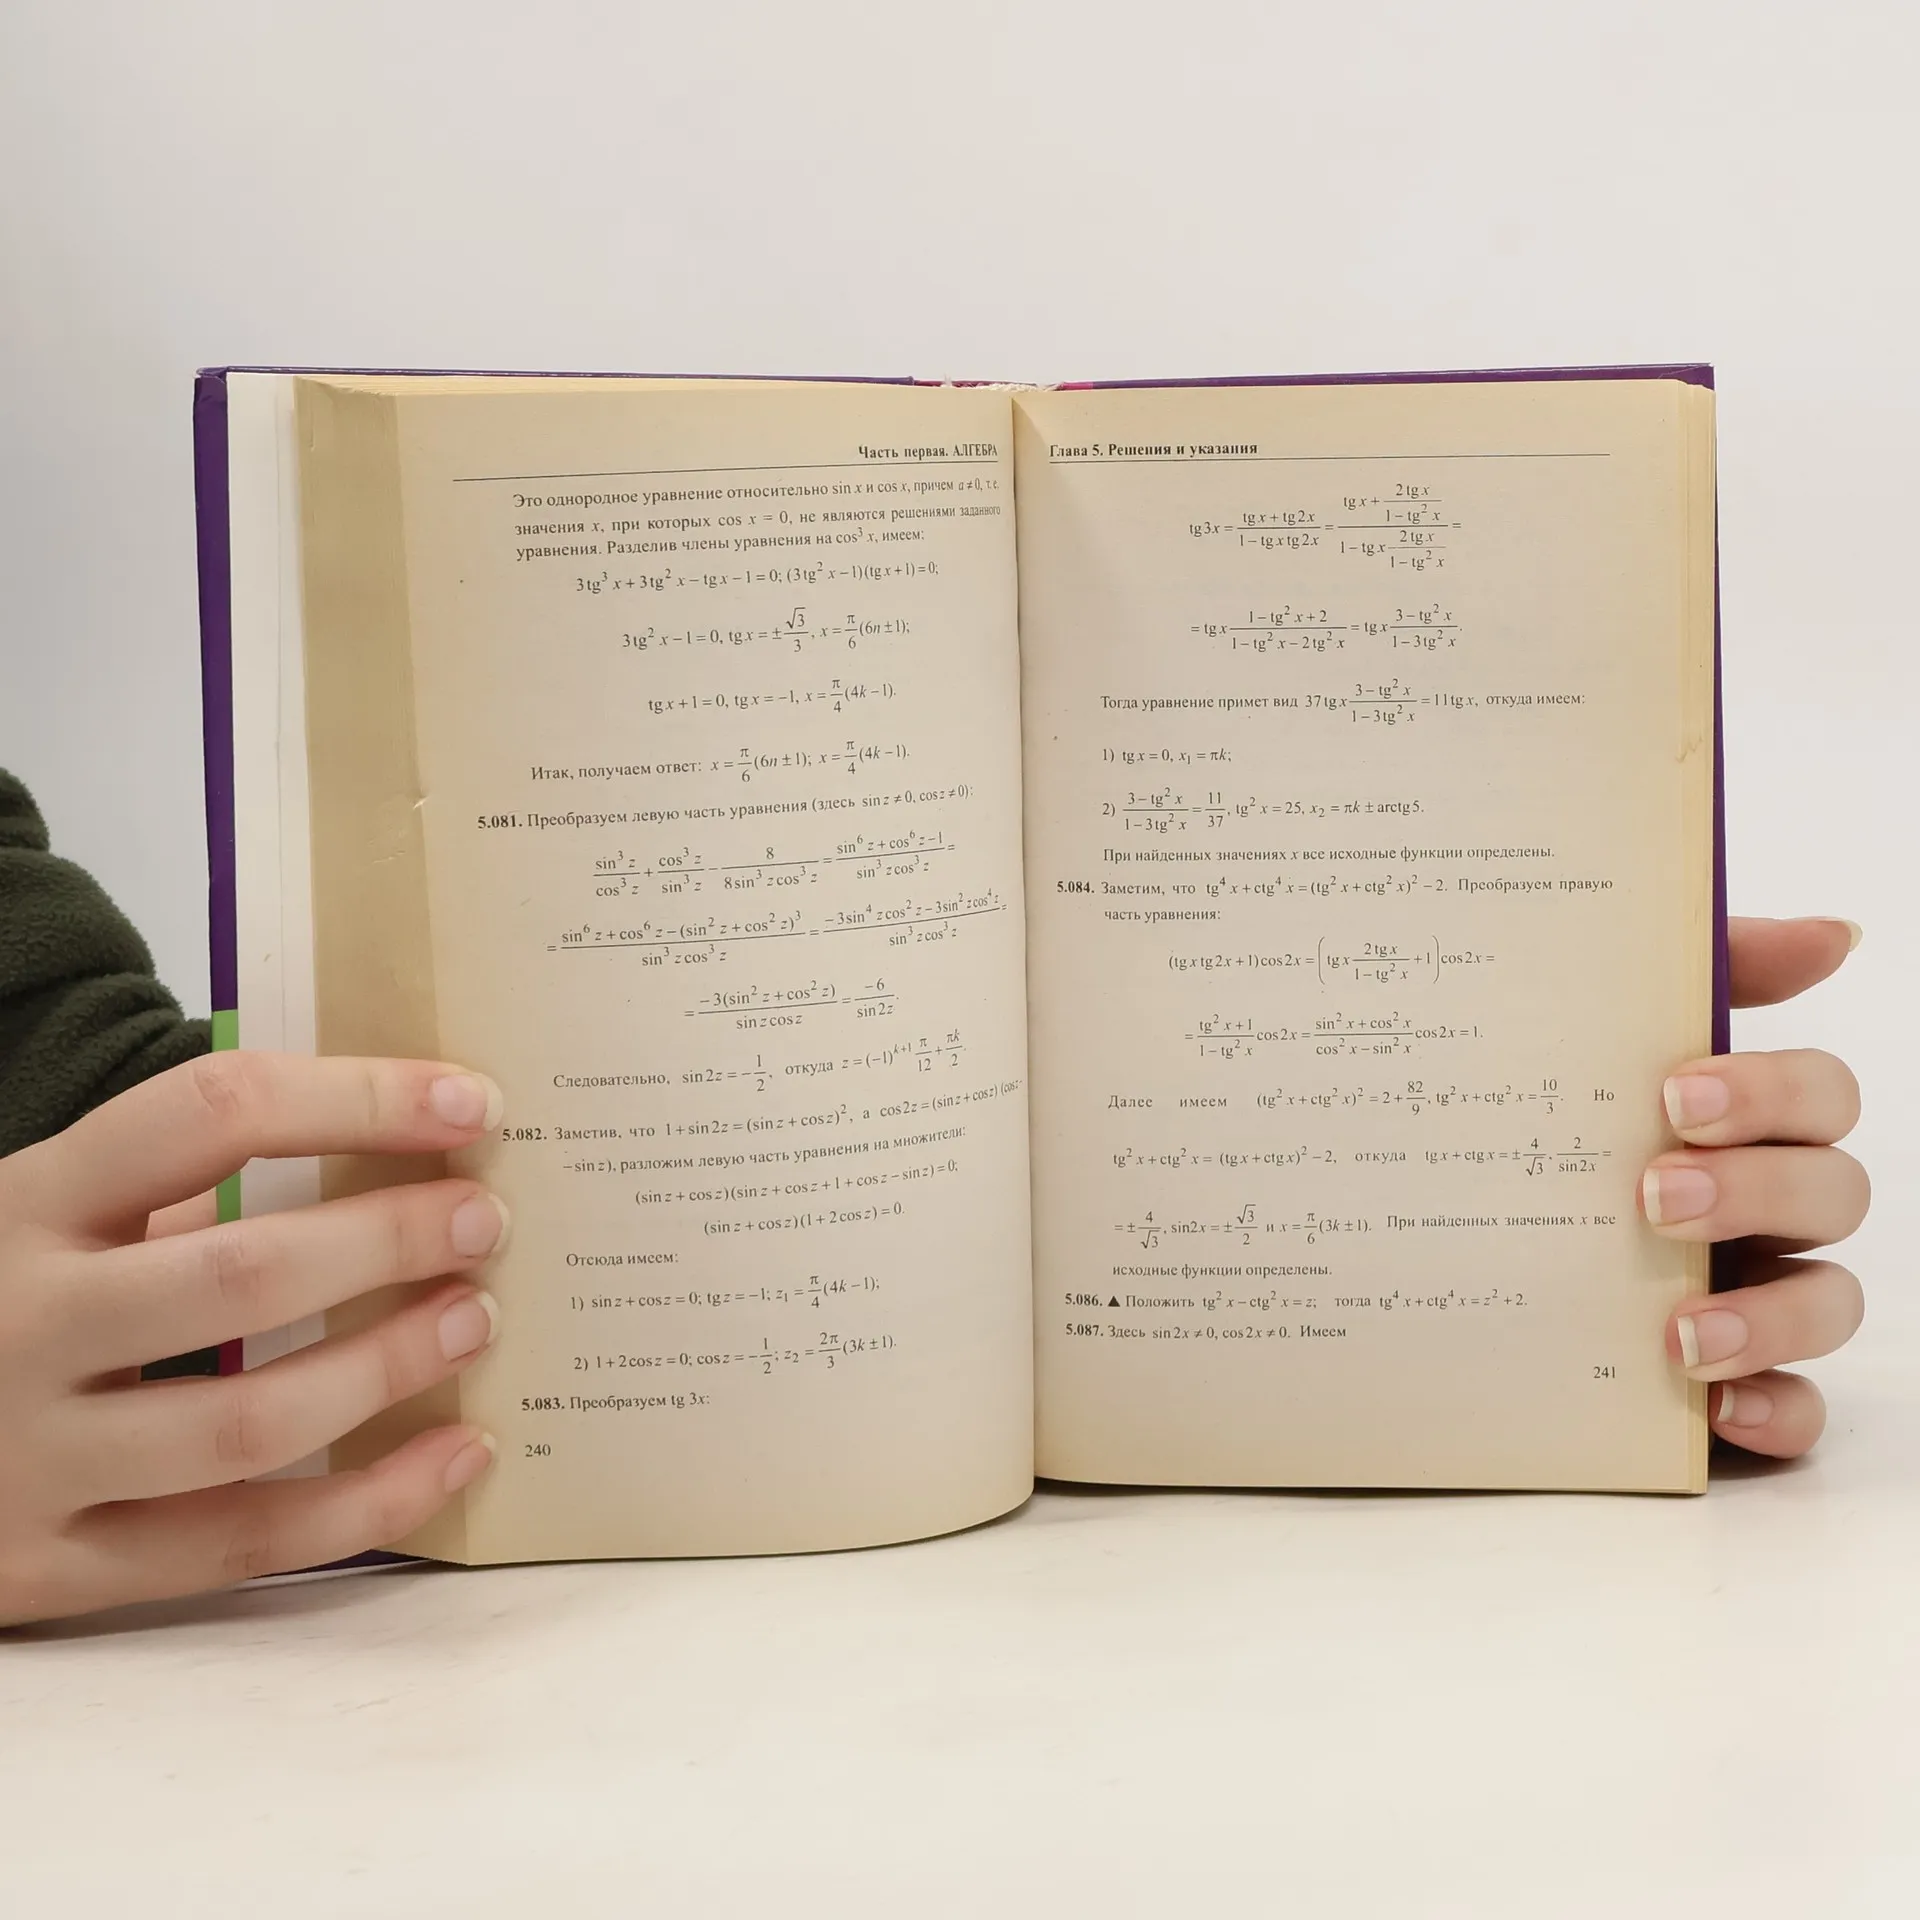 Часть первая. АЛГЕБРА
Это однородное уравнение относительно sin x и cos x, причем a ≠ 0, т.е.
значения x, при которых cos x = 0, не являются решениями заданного
уравнения. Разделив члены уравнения на cos³ x, имеем:
3tg³ x + 3tg² x − tg x − 1 = 0; (3tg² x − 1)(tg x + 1) = 0;
3tg² x − 1 = 0, tg x = ± √3/3, x = π/6 (6n ± 1);
tg x + 1 = 0, tg x = −1, x = π/4 (4k − 1).
Итак, получаем ответ: x = π/6 (6n ± 1); x = π/4 (4k − 1).
5.081. Преобразуем левую часть уравнения (здесь sin z ≠ 0, cos z ≠ 0):
sin³ z / cos³ z + cos³ z / sin³ z − 8 / (8 sin³ z cos³ z) = (sin⁶ z + cos⁶ z − 1) / (sin³ z cos³ z) =
= (sin⁶ z + cos⁶ z − (sin² z + cos² z)³) / (sin³ z cos³ z) = (−3 sin⁴ z cos² z − 3 sin² z cos⁴ z) / (sin³ z cos³ z) =
= −3(sin² z + cos² z) / (sin z cos z) = −6 / sin 2z.
Следовательно, sin 2z = −1/2, откуда z = (−1)^(k+1) π/12 + πk/2.
5.082. Заметив, что 1 + sin 2z = (sin z + cos z)², а cos 2z = (sin z + cos z) (cos z −
− sin z), разложим левую часть уравнения на множители:
(sin z + cos z)(sin z + cos z + 1 + cos z − sin z) = 0;
(sin z + cos z)(1 + 2 cos z) = 0.
Отсюда имеем:
1) sin z + cos z = 0; tg z = −1; z₁ = π/4 (4k − 1);
2) 1 + 2 cos z = 0; cos z = −1/2; z₂ = 2π/3 (3k ± 1).
5.083. Преобразуем tg 3x:
240
Глава 5. Решения и указания
tg 3x = (tg x + tg 2x) / (1 − tg x tg 2x) = (tg x + 2 tg x / (1 − tg² x)) / (1 − tg x · 2 tg x / (1 − tg² x)) =
= tg x (1 − tg² x + 2) / (1 − tg² x − 2 tg² x) = tg x (3 − tg² x) / (1 − 3 tg² x).
Тогда уравнение примет вид 37 tg x (3 − tg² x) / (1 − 3 tg² x) = 11 tg x, откуда имеем:
1) tg x = 0, x₁ = πk;
2) (3 − tg² x) / (1 − 3 tg² x) = 11/37, tg² x = 25, x₂ = πk ± arctg 5.
При найденных значениях x все исходные функции определены.
5.084. Заметим, что tg⁴ x + ctg⁴ x = (tg² x + ctg² x)² − 2. Преобразуем правую
часть уравнения:
(tg x tg 2x + 1) cos 2x = (tg x · 2 tg x / (1 − tg² x) + 1) cos 2x =
= (tg² x + 1) / (1 − tg² x) cos 2x = (sin² x + cos² x) / (cos² x − sin² x) cos 2x = 1.
Далее имеем (tg² x + ctg² x)² = 2 + 82/9, tg² x + ctg² x = 10/3. Но
tg² x + ctg² x = (tg x + ctg x)² − 2, откуда tg x + ctg x = ± 4/√3, 2 / sin 2x =
= ± 4/√3, sin 2x = ± √3/2 и x = π/6 (3k ± 1). При найденных значениях x все
исходные функции определены.
5.086. ▲ Положить tg² x − ctg² x = z; тогда tg⁴ x + ctg⁴ x = z² + 2.
5.087. Здесь sin 2x ≠ 0, cos 2x ≠ 0. Имеем
241